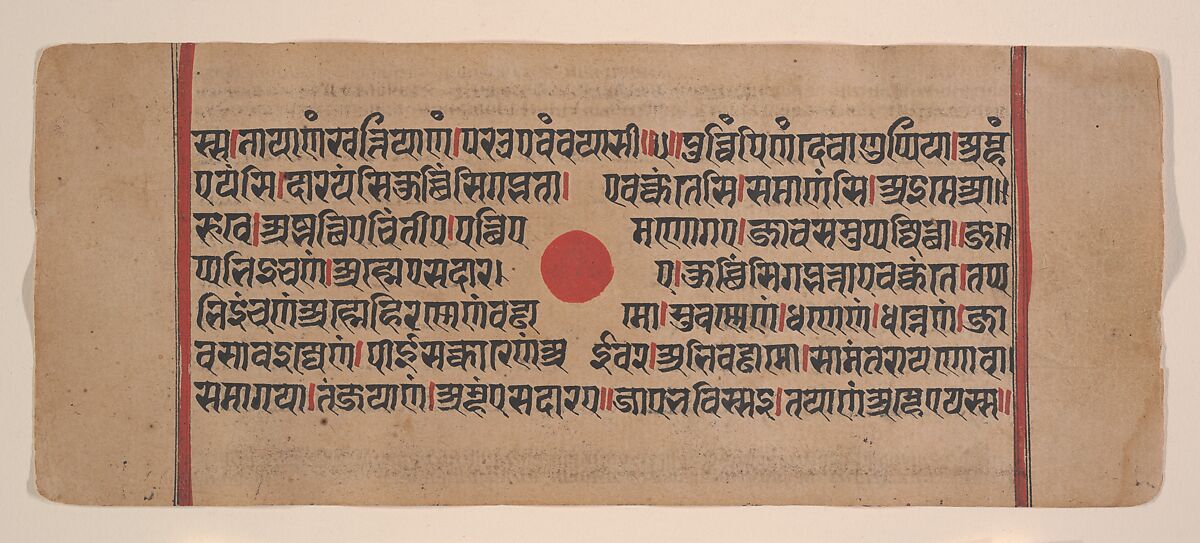 स्स।नायाणं खत्तियाणं।पुरउ एवं वयासी॥७॥पुव्विं पि णं देवाणुप्पिया।अम्हं
एयंसि।दारयंसि कुच्छिंसि गब्भत्ताए।वक्कंतंसि।समाणंसि।अइमेआ॥
रूवे।अब्भत्थिए चिंतीए।पत्थिए मणोगए।जाव समुप्पज्जित्था॥ज
प्पभिइं च णं।अम्हं एस दारए।कुच्छिंसि गब्भत्ताए वक्कंते।तप्प
भिइं च णं अम्हे हिरण्णेणं वड्ढामो।सुवण्णेणं।धणेणं।धन्नेणं।जा
व सावइज्जेणं।पीईसक्कारेणं अईव२।अभिवड्ढामो।सामंतरायाणो व।
समागया।तं जया णं।अम्हं एस दारए॥जाए भविस्सइ।तया णं अम्हे एयस्स॥